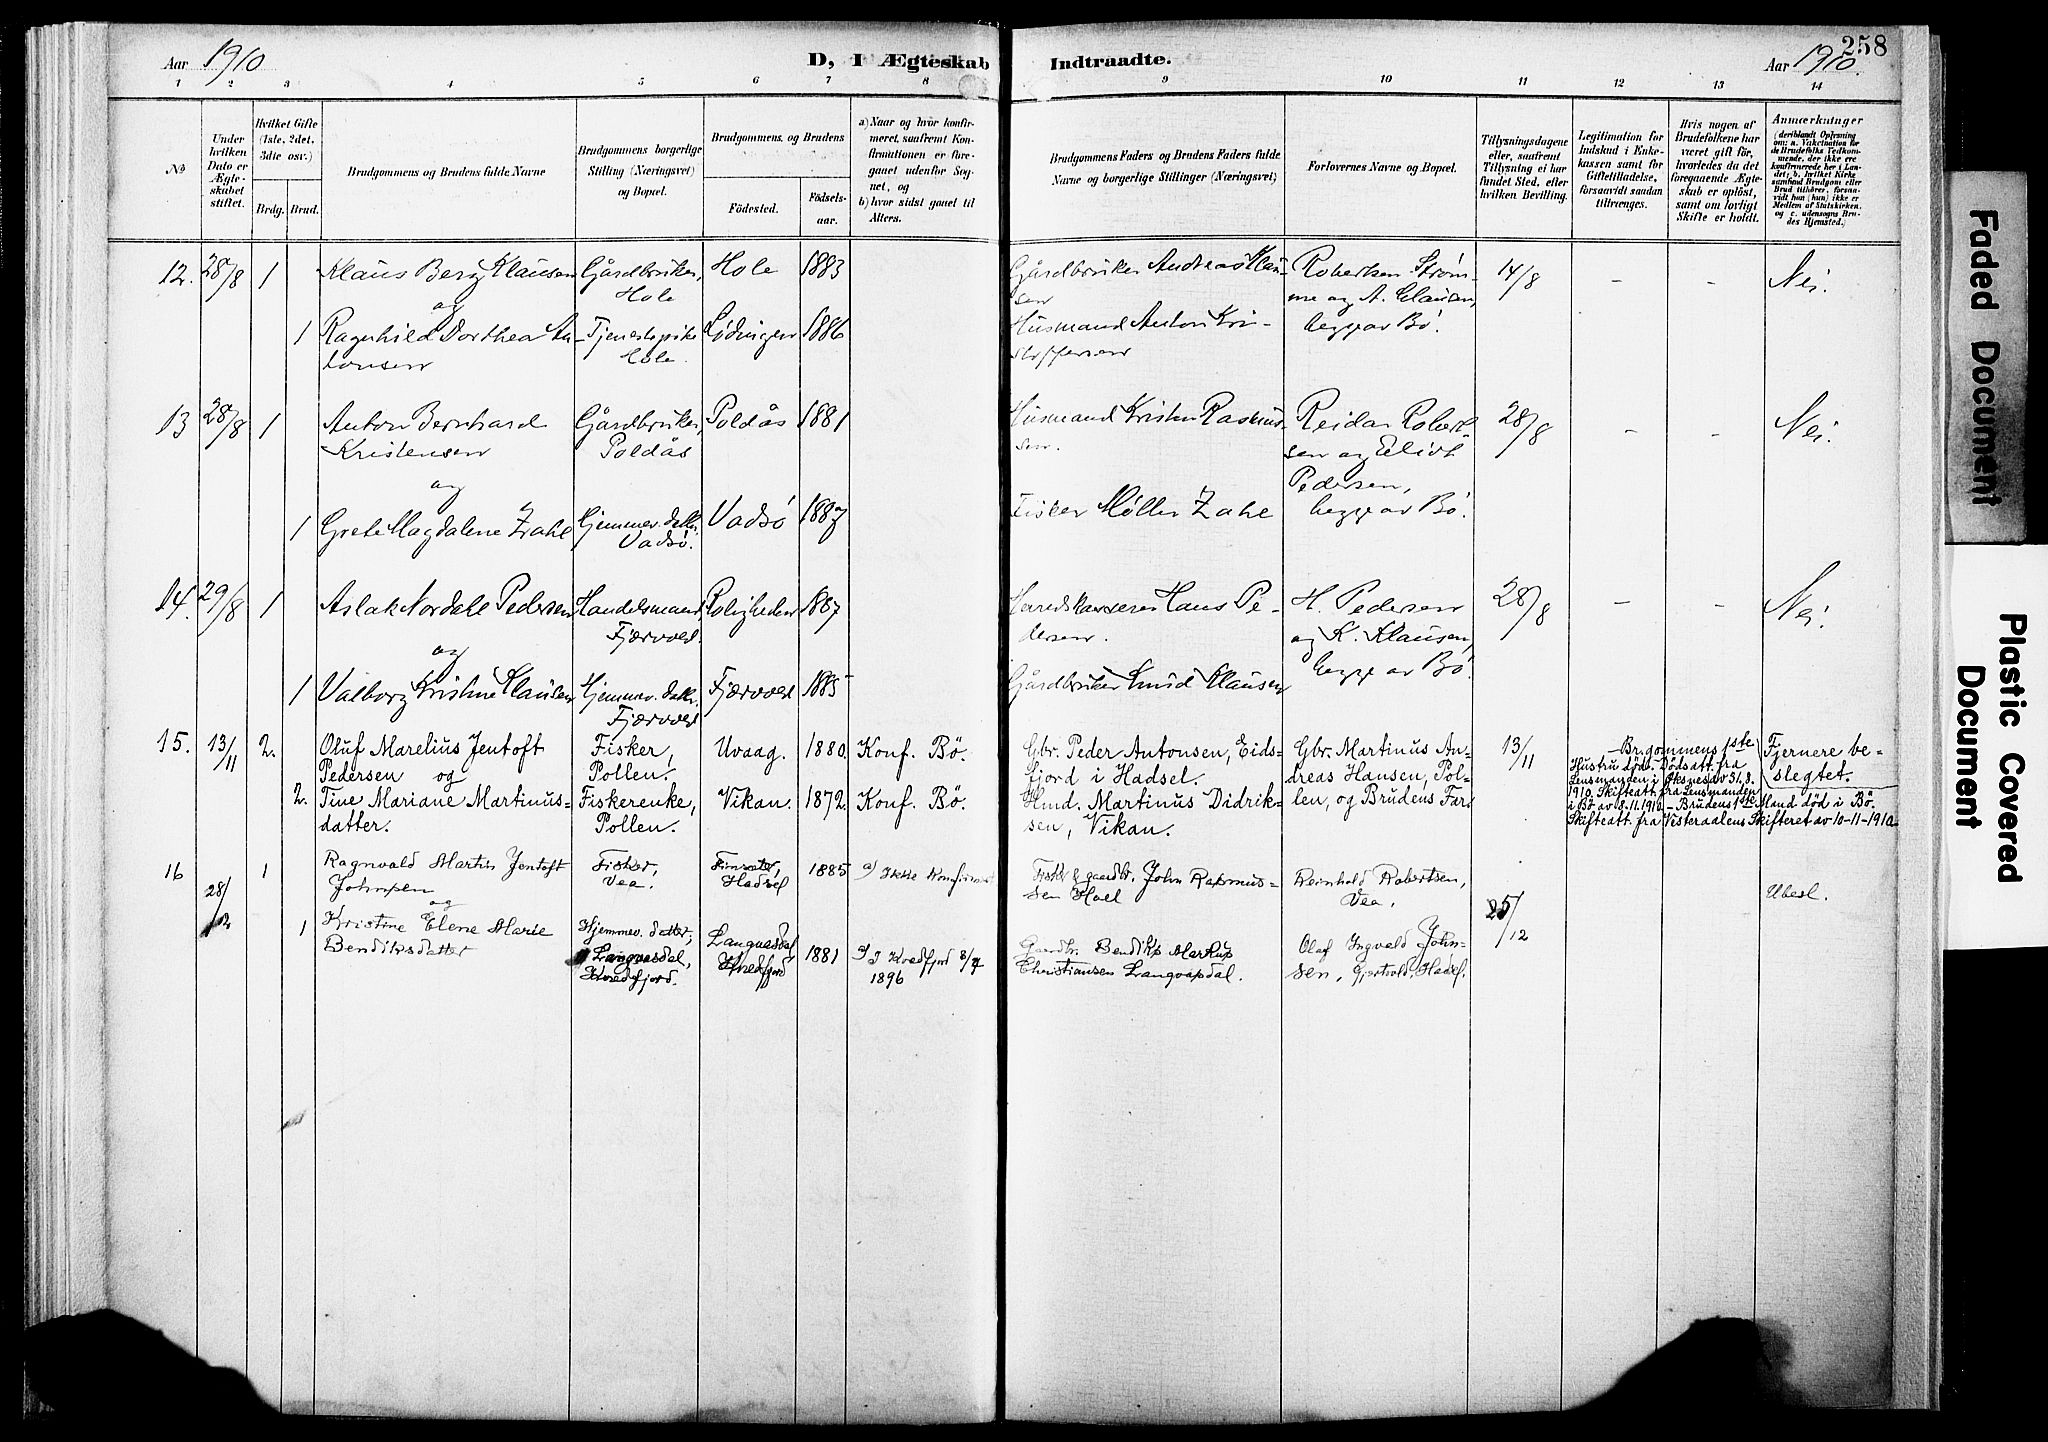 Aar 1910
D, I Ægteskab Indtraadte.
258
Aar 1910.
1 2 3 4 5 6 7 8 9 10 11 12 13 14
No
Under hvilken Dato er Ægteskabet stiftet.
Hvilket Gifte (1ste, 2det, 3die osv.)
Brdg. Brud.
Brudgommens og Brudens fulde Navne
Brudgommens borgerlige Stilling (Næringsvei) og Bopæl.
Brudgommens og Brudens
Fødested.
Fødselsaar.
a) Naar og hvor konfirmeret, saafremt Konfirmationen er foregaaet udenfor Sognet, og
b) hvor sidst gaaet til Alters.
Brudgommens Faders og Brudens Faders fulde Navne og borgerlige Stillinger (Næringsvei)
Forlovernes Navne og Bopæl.
Tillysningsdagene eller, saafremt Tillysning ei har fundet Sted, efter hvilken Bevilling.
Legitimation for Indskud i Enkekassen samt for Giftetilladelse, forsaavidt saadan tiltrænges.
Hvis nogen af Brudefolkene har været gift før, hvorledes da det foregaaende Ægteskab er opløst, samt om lovligt Skifte er holdt.
Anmærkninger
(deriblandt Oplysning om: a. Vakcination for de Brudefolks Vedkommende, der ikke ere konfirmerede her i Landet; b. hvilket Kirkesamfund Brudgom eller Brud tilhører, forsaavidt han (hun) ikke er Medlem af Statskirken, og c. udensogns Brudes Hjemsted.)
12. 28/8 1 Klaus Berg Klausen Gårdbruker, Hole 1883 Gårdbruker Andreas Klau- Robertsen Strøm- 14/8 - - Nei.
og Hole sen me og A. Clausen,
1 Ragnhild Dorthea An- Tjenestepike Lødingen 1886 Husmand Anton Kri- begge av Bø.
tonsen Hole. stoffersen
13 28/8 1 Anton Bernhard Gårdbruker, Poldås 1881 Husmand Kristen Rasmus- Reidar Robert- 28/8 - - Nei.
Kristensen Poldås sen. sen og Eliot
og Pedersen,
1 Grete Magdalene Zahl Hjemmev. datter, Vadsø 1887 Fisker Møller Zahl begge av Bø.
Vadsø.
14. 29/8 1 Aslak Nordahl Pedersen Handelsmand, Roligheden 1887 Herredskasserer Hans Pe- H. Pedersen 28/8 - - Nei.
og Fjærvoll dersen. og K. Klausen,
1 Valborg Kristine Klausen Hjemmev. datter, Fjærvoll 1885 Gårdbruker Knud Klausen begge av Bø.
Fjærvoll
15. 13/11 2. Oluf Marelius Jentoft Fisker, Uvaag. 1880. Konf. Bø. Gbr. Peder Antonsen, Eids- Gbr. Martinus An- 13/11 - Brgommens 1ste Fjernere be-
Pedersen og Pollen. fjord i Hadsel. dreas Hansen, Pol- Hustru død. Dødsatt. fra slegtet.
2. Tine Mariane Martinus- Fiskerenke, Vikan. 1872. Konf. Bø. Hmd. Martinus Didrik- len, og Brudens Far Lensmanden i Øksnes av 31.8.
datter. Pollen. sen, Vikan. 1910. Skifteatt. fra Lensmanden
i Bø av 8.11.1910 - Brudens 1ste Mand død i Bø.
Skifteatt. fra Vesteraalens Skifteret av 10-11-1910
16 28/12 1 Ragnvald Martin Jentoft Fisker, Hadsel 1885 a) Ikke konfirmert Fisker & gaardbr. John Rasmus- Reinhold Robertsen, 25/12 Ubesl.
Johnsen Vea. sen Hoel Vea.
og
1 Kristine Elene Marie Hjemmev. datter; Langvasdal, 1881 a) I Kvedfjord 1896 Gaardbr. Bendiks Markus Olaf Ingvald John-
Bendiksdatter Langvasdal, Kvedfjord Christiansen Langvasdal. sen, Gjertvold, Hadsel.
Kvedfjord.
Faded Document
Plastic Covered Document